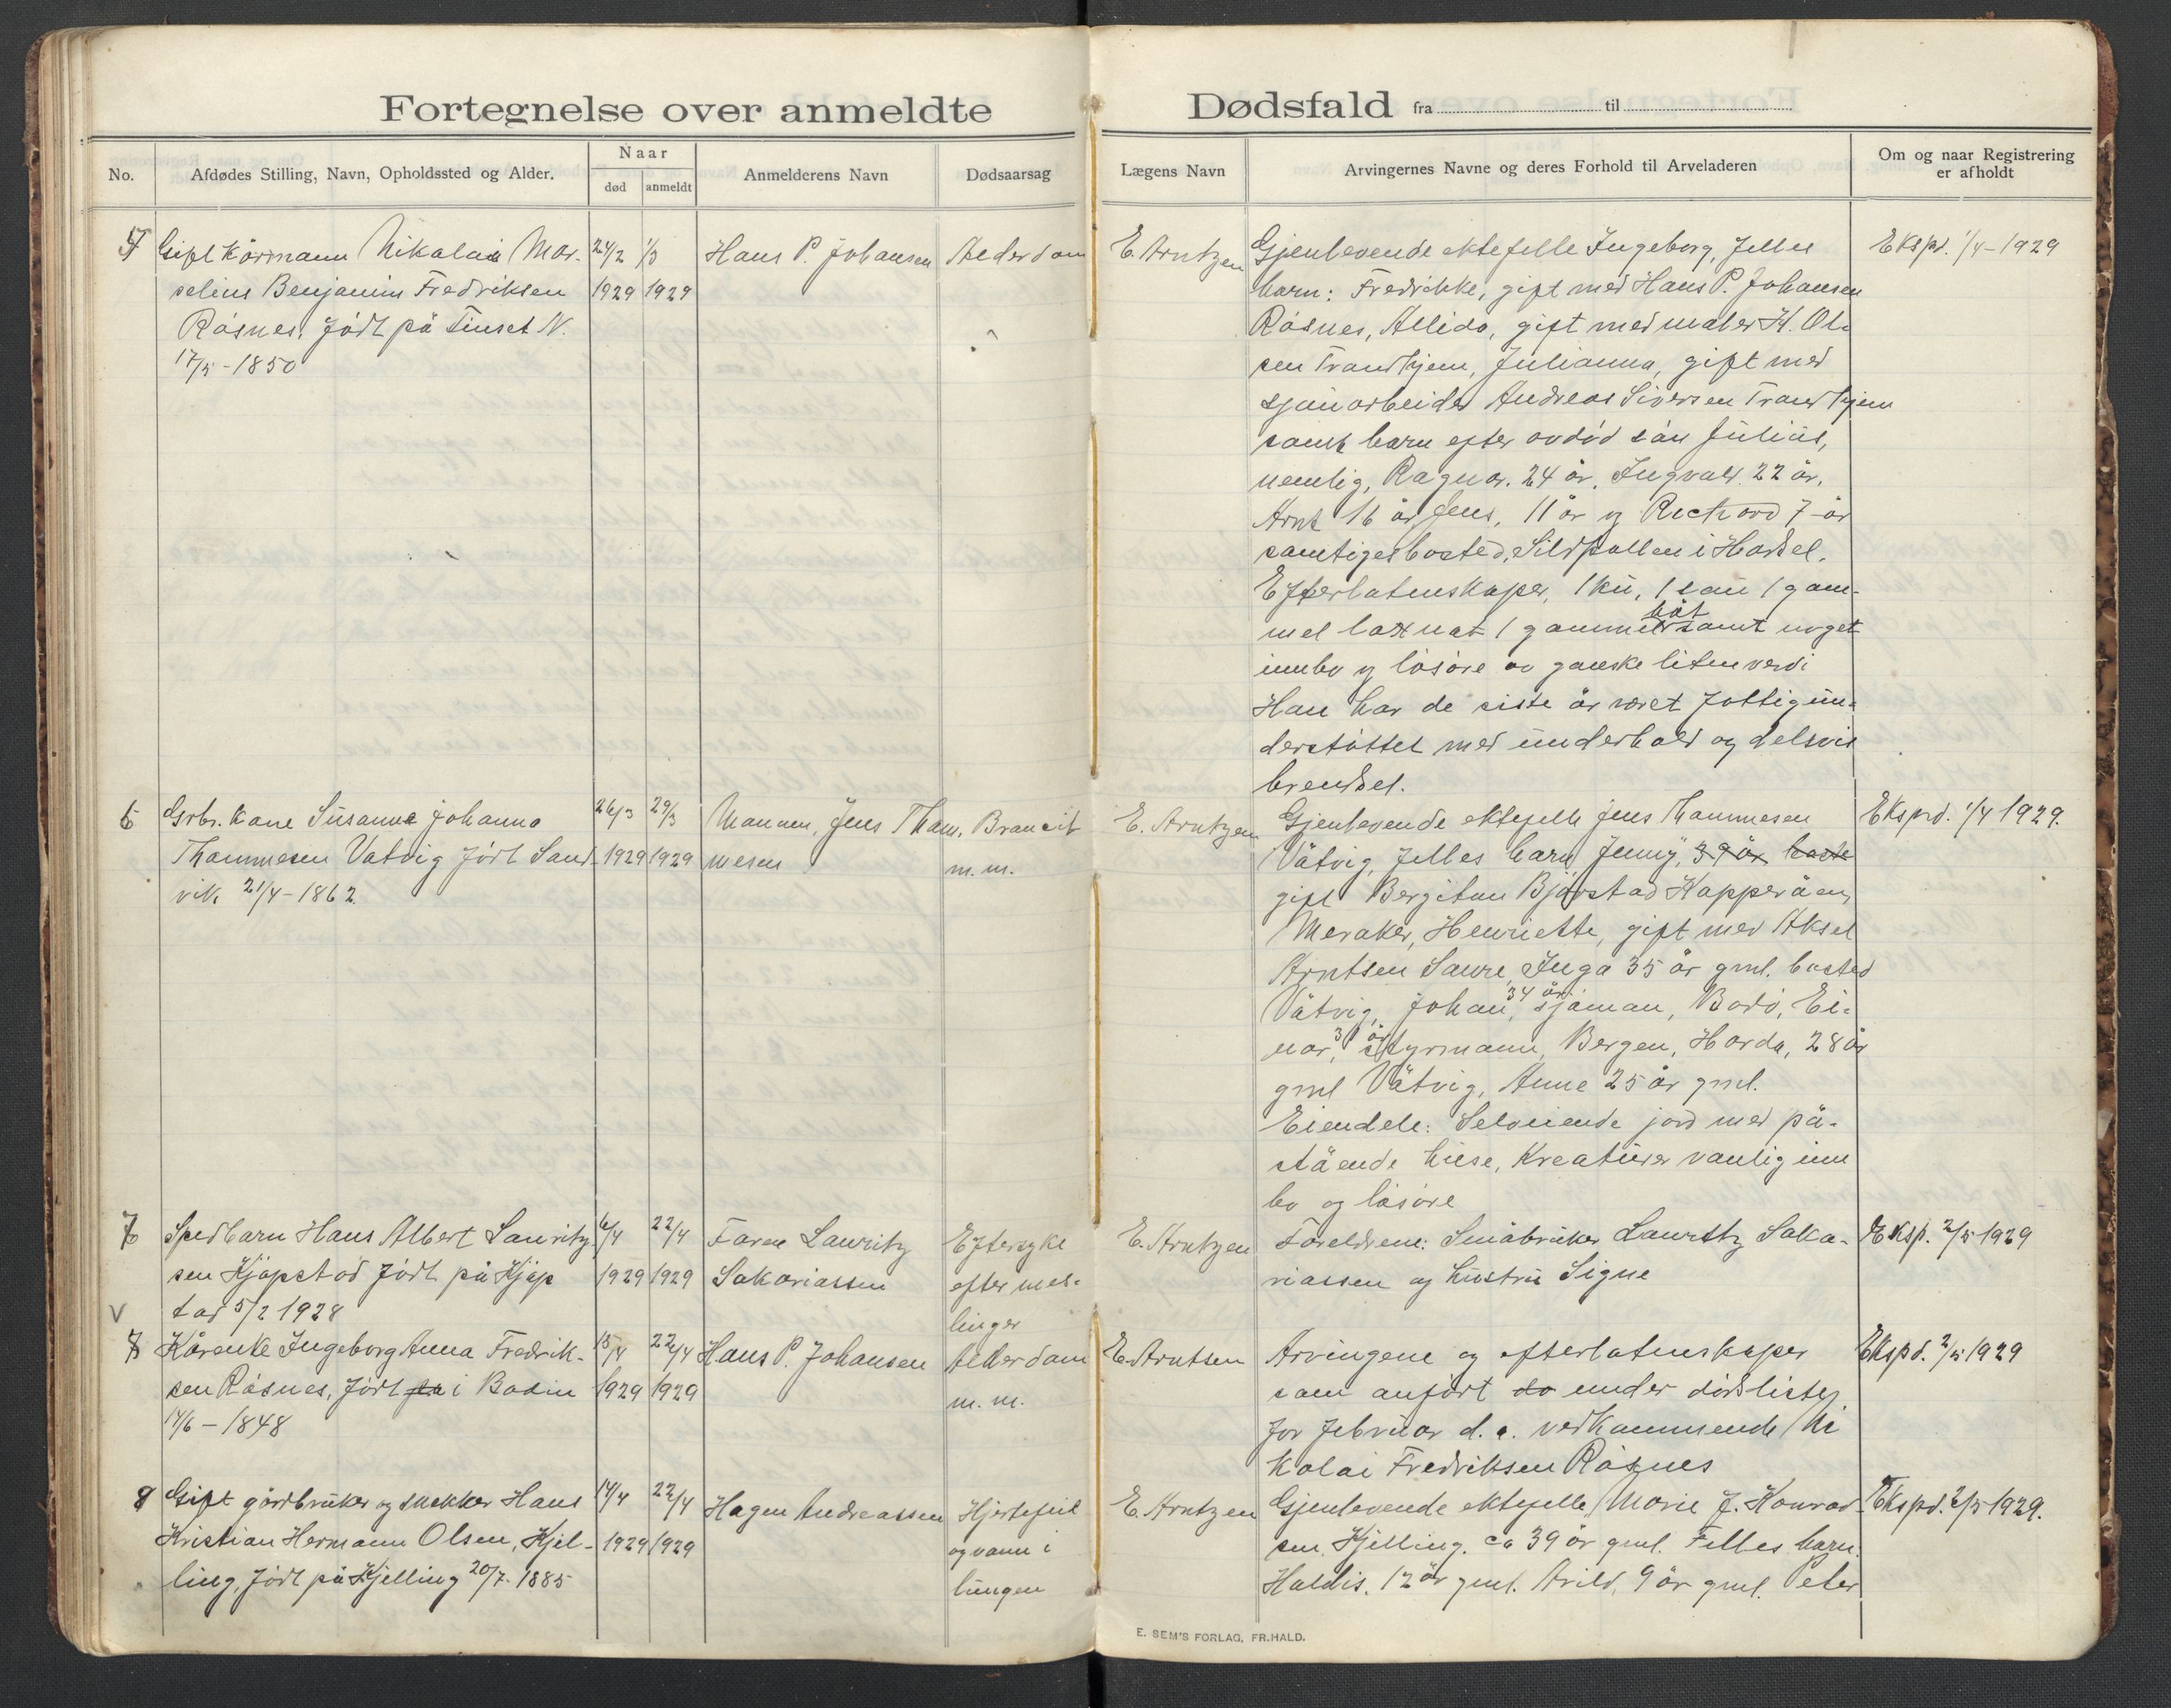 Fortegnelse over anmeldte Dødsfald fra til
No.
Afdødes Stilling, Navn, Opholdssted og Alder.
Naar
død
anmeldt
Anmelderens Navn
Dødsaarsag
Lægens Navn
Arvingernes Navne og deres Forhold til Arveladeren
Om og naar Registrering
er afholdt
Gift kårmann Nikolai Mar-
selius Benjamin Fredriksen
Råsnes, født på N.
17/5 - 1850
24/2
1929
1/3
1929
Hans P. Johansen
Alderdom
E. Arntzen
Gjenlevende ektefelle Ingeborg, felles
barn: Fredrikke, gift med Hans P. Johansen
Råsnes, Allida, gift med maler H. Ol-
sen Trondhjem, Julianna, gift med
sjauarbeider Andreas Siversen Trondhjem
samt barn efter avdød søn Julius,
nemlig, Ragnar. 24 år, Ingvald. 22 år,
Arnt 16 år, Jens, 11 år og Richard 7 år
samtiges bosted, Sildpollen i Hadsel.
Efterlatenskaper, 1 ku, 1 sau 1 gam-
mel laxnot 1 gammel båt samt noget
innbo og løsøre av ganske liten verdi
Han har de siste år været fattigun-
derstøttet med underhold og delsvis
brendsel.
Ekspd. 1/4 - 1929
6
Grbr. kone Susanna Johanna
Thommesen Vatvig født Sand-
vik 21/4 - 1862.
26/3
1929
29/3
1929
Mannen, Jens Thom-
mesen
Brancit
m. m.
E. Arntzen
Gjenlevende ektefelle Jens Thommesen
Våtvig, felles barn Jenny, 39 år boste
gift Bergitan Bjørstad Kopperåen,
Meraker, Henriette, gift med Aksel
Arntsen Saure, Inga 35 år gml. bosted
Våtvig, Johan, 34 år sjømann, Bodø, Ei-
nar, 31 år styrmann, Bergen, Harda, 28 år
gml Våtvig, Anne 25 år gml.
Eiendele: Selveiende jord med på-
stående huse, Kreaturer vanlig inn
bo og løsøre
Ekspd. 1/4 1929.
7
Spedbarn Hans Albert Lauritz-
sen Kjøpstad født på Kjøp
stad 5/2 1928
6/4
1929
22/4
1929
Faren Lauritz
Sakariassen
Eftersyke
efter mes-
linger
E. Arntzen
Foreldrene: Småbruker Lauritz Saka-
riassen og hustru Signe
Eksp. 2/5 1929
V
Kårenke Ingeborg Anna Fredrik-
sen Råsnes, født på i Bodin
14/6 - 1848
15/4
1929
22/4
1929
Hans P. Johansen
Alderdom
m. m.
E. Arntsen
Arvingene og efterlatenskaper
som anført do under dødslisten
for februar d. a. vedkommende Ni
kolai Fredriksen Råsnes
Ekspd. 2/5 1929
Gift gårdbruker og snekker Hans
Kristian Hermann Olsen, Kjel-
ling, født på Kjelling 20/7- 1885
14/4
1929
22/4
1929
Hagen Andreassen
Hjertefeil
og vann i
lungen
E. Arntzen
Gjenlevende ektefelle Marie J. Konrad-
sen, Kjelling. ca 39 år gml. Felles barn.
Haldis. 12 år gml. Arild, 9 år gml. Peter
Ekspd. 2/5 1929.
E. SEM'S FORLAG, FR.HALD.